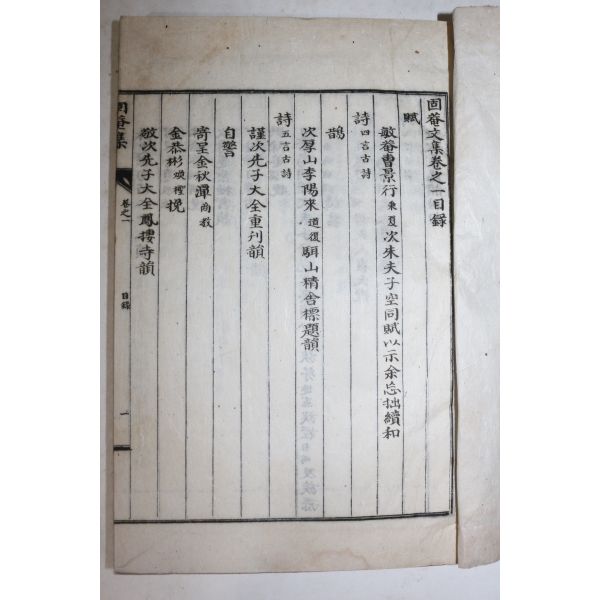 固菴文集卷之一目錄
賦
敏菴曹景行秉夏次朱夫子空同賦以示余忘拙續和
詩四言古詩
鵲
次厚山李陽來道復駬山精舍標題韻
詩五言古詩
謹次先子大全重刊韻
自警
寄呈金秋潭尚教
金恭彬煥 挽
敬次先子大全鳳棲寺韻
固菴集
卷之一
目錄
一